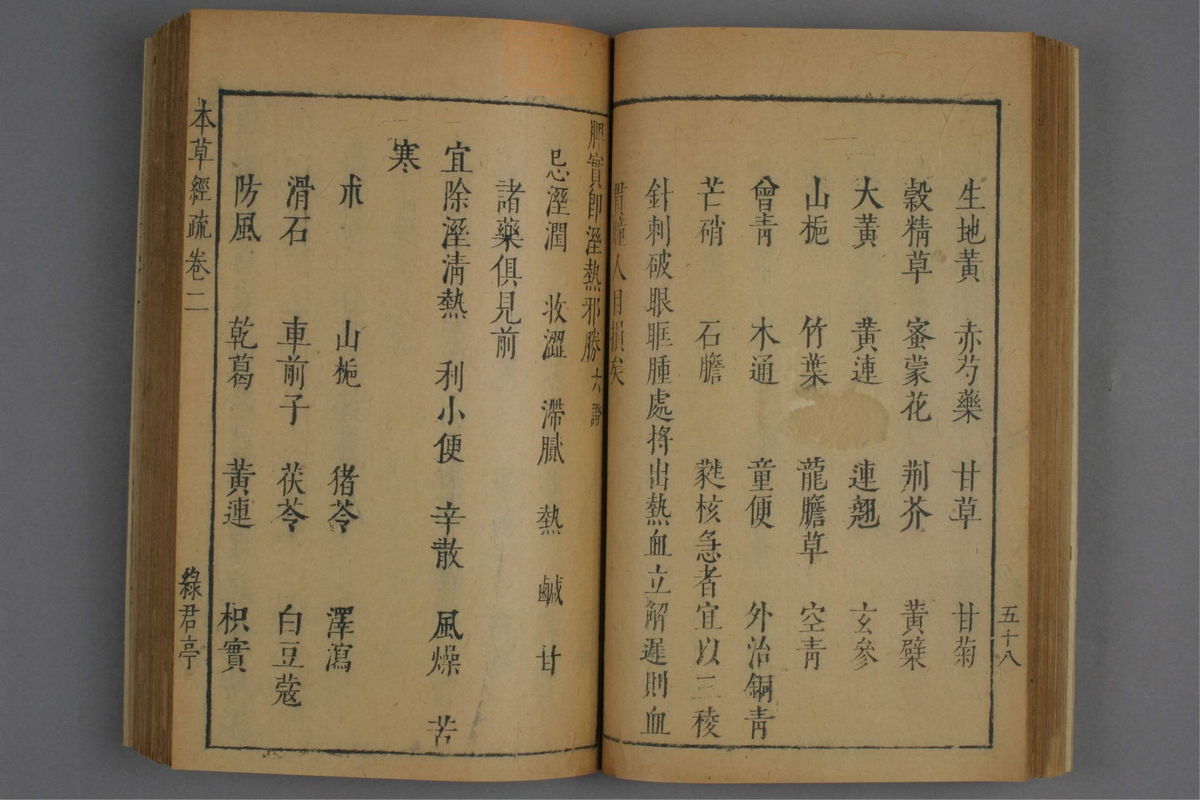 生地黃 赤芍藥 甘草 甘菊
穀精草 蜜蒙花 荊芥 黃檗
大黃 黃連 連翹 玄參
山梔 竹葉 龍膽草 空青
曾青 木通 童便 外治銅青
芒硝 石膽 蕤核急者宜以三稜
針刺破眼眶腫處將出熱血立解遲則血
貫瞳人目損矣
五十八
脾實即溼熱邪勝六證
忌溼潤 收澀 滯膩 熱 鹹 甘
諸藥俱見前
宜除溼淸熱 利小便 辛散 風燥 苦
寒
朮 山梔 猪苓 澤瀉
滑石 車前子 茯苓 白豆蔻
防風 乾葛 黃連 枳實
本草經疏卷二
綠君亭